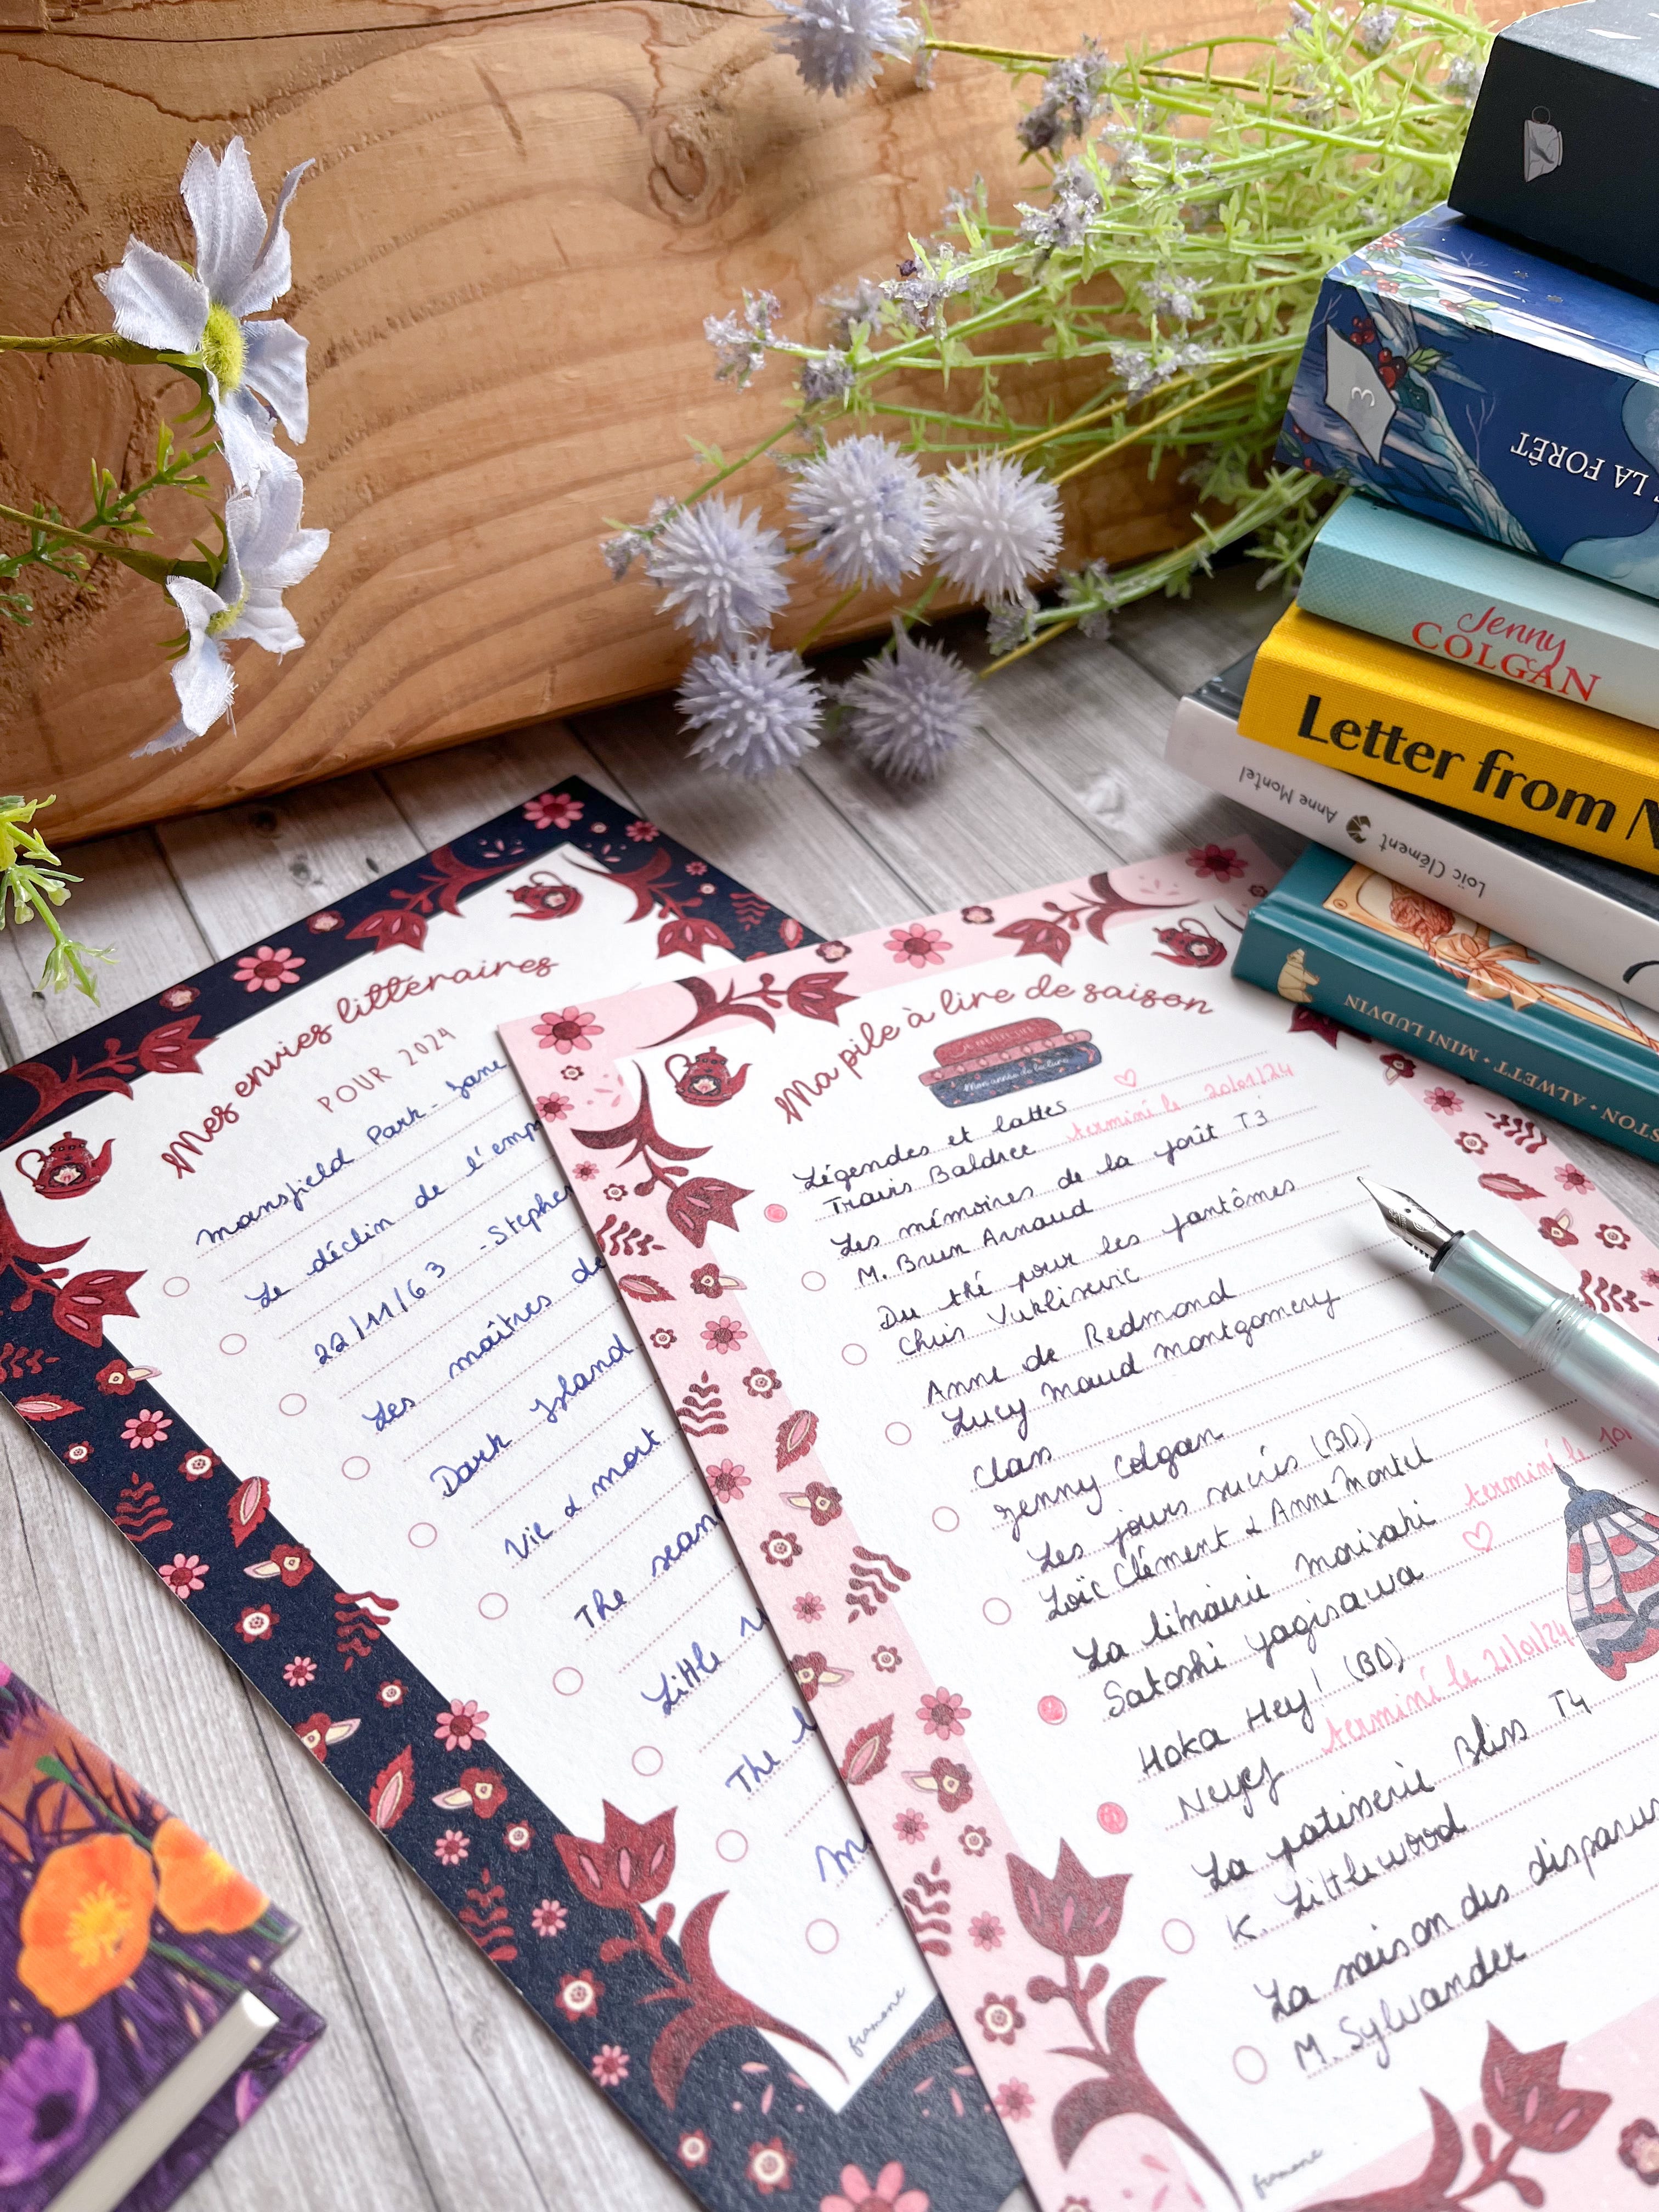 3
LA FORÊT
Jenny
COLGAN
Letter from N
Loïc Clément Anne Montel
STON • ALWETT • MINI LUDVIN
Mes envies littéraires
POUR 2024
Mansfield Park - Jane
Le déclin de l'emp
22/11/63 - Stephen
Les maîtres de
Dark Island
Vie & mort
The sean
Little
The
framone
Ma pile à lire de saison
Mon année de lecture
Légendes et lattes
Travis Baldree terminé le 20/01/24
Les mémoires de la forêt T3
M. Brun Arnaud
Du thé pour les fantômes
Chris Vuklisevic
Anne de Redmond
Lucy Maud Montgomery
Class
Jenny Colgan
Les jours sucrés (BD)
Loïc Clément & Anne Montel
La librairie Morisaki terminé le 10
Satoshi Yagisawa
Hoka Hey! (BD)
Neyef terminé le 21/01/24
La patisserie Bliss T4
K. Littlewood
La maison des disparus
M. Sylvander
framone